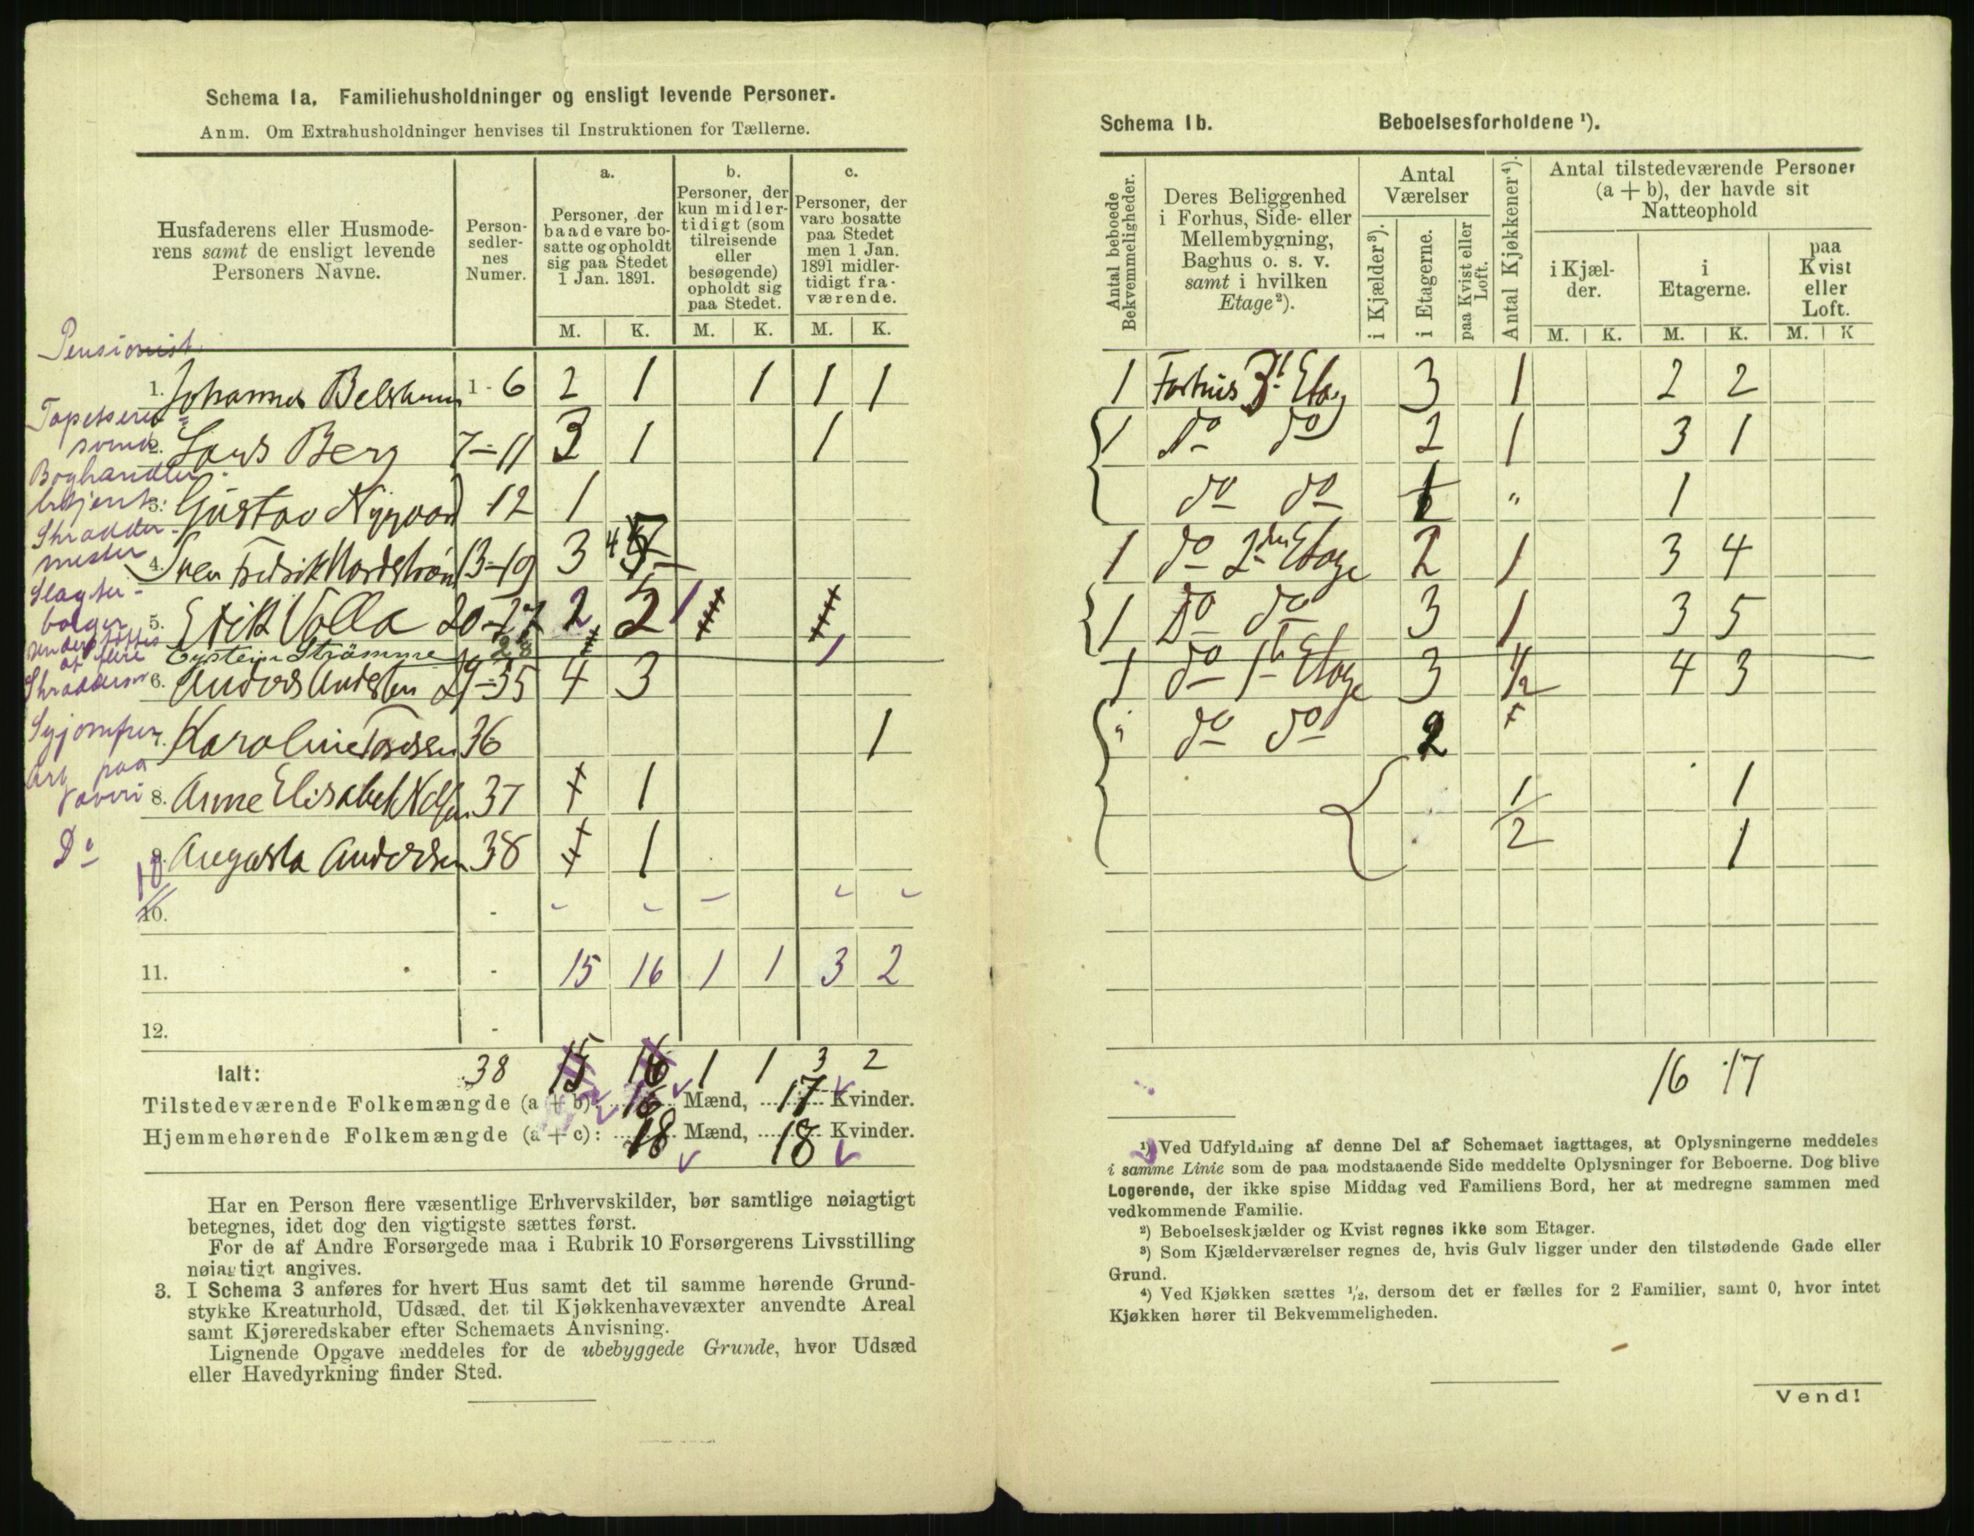 Schema 1a. Familiehusholdninger og ensligt levende Personer.
Anm. Om Extrahusholdninger henvises til Instruktionen for Tællerne.
Husfaderens eller Husmode-
rens samt de ensligt levende
Personers Navne.
Person-
sedler-
nes
Numer.
a.
Personer, der
baade vare bo-
satte og opholdt
sig paa Stedet
1 Jan. 1891.
b.
Personer, der
kun midler-
tidigt (som
tilreisende
eller
besøgende)
opholdt sig
paa Stedet.
c.
Personer, der
vare bosatte
paa Stedet
men 1 Jan.
1891 midler-
tidigt fra-
værende.
M. K. M. K. M. K.
Pensionist
1. Johannes 1-6 2 1 1 1 1
Tapetserer
svend
2. Lars Berg 7-11 3 1 1
Boghandler
betjent
3. Gustav 12 1
Skrædder
mester
4. Sven Fredrik Nordstrøm 13-19 3 4
Slagter
borger
5. Erik Volla 20-27 2 5 1
Understøttes
af flere
Eystein Strømme 28 1
6. Anders 29-35 4 3
Syjomfru
7. Karoline 36 1
Arb paa
Væveri
8. Anne Elisabeth 37 1
Do
9. Augusta Andersen 38 1
10.
11. 15 16 1 1 3 2
12.
Ialt: 38 15 16 1 1 3 2
Tilstedeværende Folkemængde (a + b): 16 Mænd, 17 Kvinder.
Hjemmehørende Folkemængde (a + c): 18 Mænd, 18 Kvinder.
Har en Person flere væsentlige Erhvervskilder, bør samtlige nøiagtigt
betegnes, idet dog den vigtigste sættes først.
For de af Andre Forsørgede maa i Rubrik 10 Forsørgerens Livsstilling
nøiagtigt angives.
3. I Schema 3 anføres for hvert Hus samt det til samme hørende Grund-
stykke Kreaturhold, Udsæd, det til Kjøkkenhavevæxter anvendte Areal
samt Kjøreredskaber efter Schemaets Anvisning.
Lignende Opgave meddeles for de ubebyggede Grunde, hvor Udsæd
eller Havedyrkning finder Sted.
Schema 1b. Beboelsesforholdene ¹).
Antal beboede
Bekvemmeligheder.
Deres Beliggenhed
i Forhus, Side- eller
Mellembygning,
Baghus o. s. v.
samt i hvilken
Etage²).
Antal
Værelser
i Kjælder³).
i Etagerne.
paa Kvist eller
Loft.
Antal Kjøkkener⁴).
Antal tilstedeværende Personer
(a + b), der havde sit
Natteophold
i Kjæl-
der.
i
Etagerne.
paa
Kvist
eller
Loft.
M. K. M. K. M. K
1 Forhus 3d Etag 3 1 2 2
1 do do 2 1 3 1
do do 1 " 1
1 do 2den Etage 2 1 3 4
1 Do do 3 1 3 5
1 do 1st Etage 3 1/2 4 3
do do 2
1/2 1
1
16 17
¹) Ved Udfyldning af denne Del af Schemaet iagttages, at Oplysningerne meddeles
i samme Linie som de paa modstaaende Side meddelte Oplysninger for Beboerne. Dog blive
Logerende, der ikke spise Middag ved Familiens Bord, her at medregne sammen med
vedkommende Familie.
²) Beboelseskjælder og Kvist regnes ikke som Etager.
³) Som Kjælderværelser regnes de, hvis Gulv ligger under den tilstødende Gade eller
Grund.
⁴) Ved Kjøkken sættes ½, dersom det er fælles for 2 Familier, samt 0, hvor intet
Kjøkken hører til Bekvemmeligheden.
Vend!